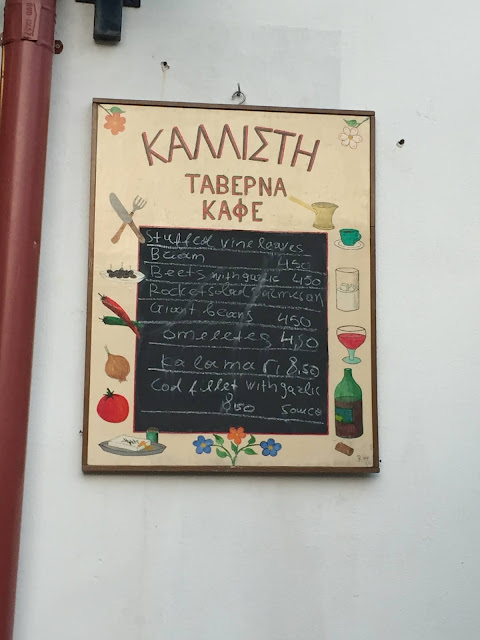 ΚΑΛΛΙΣΤΗ
ΤΑΒΕΡΝΑ
ΚΑΦΕ
Stuffed vine leaves
450
Beets with garlic 450
Giant beans 450
omeletes 4,50
kalamari 8.50
Cod fillet with garlic
8,50 souce